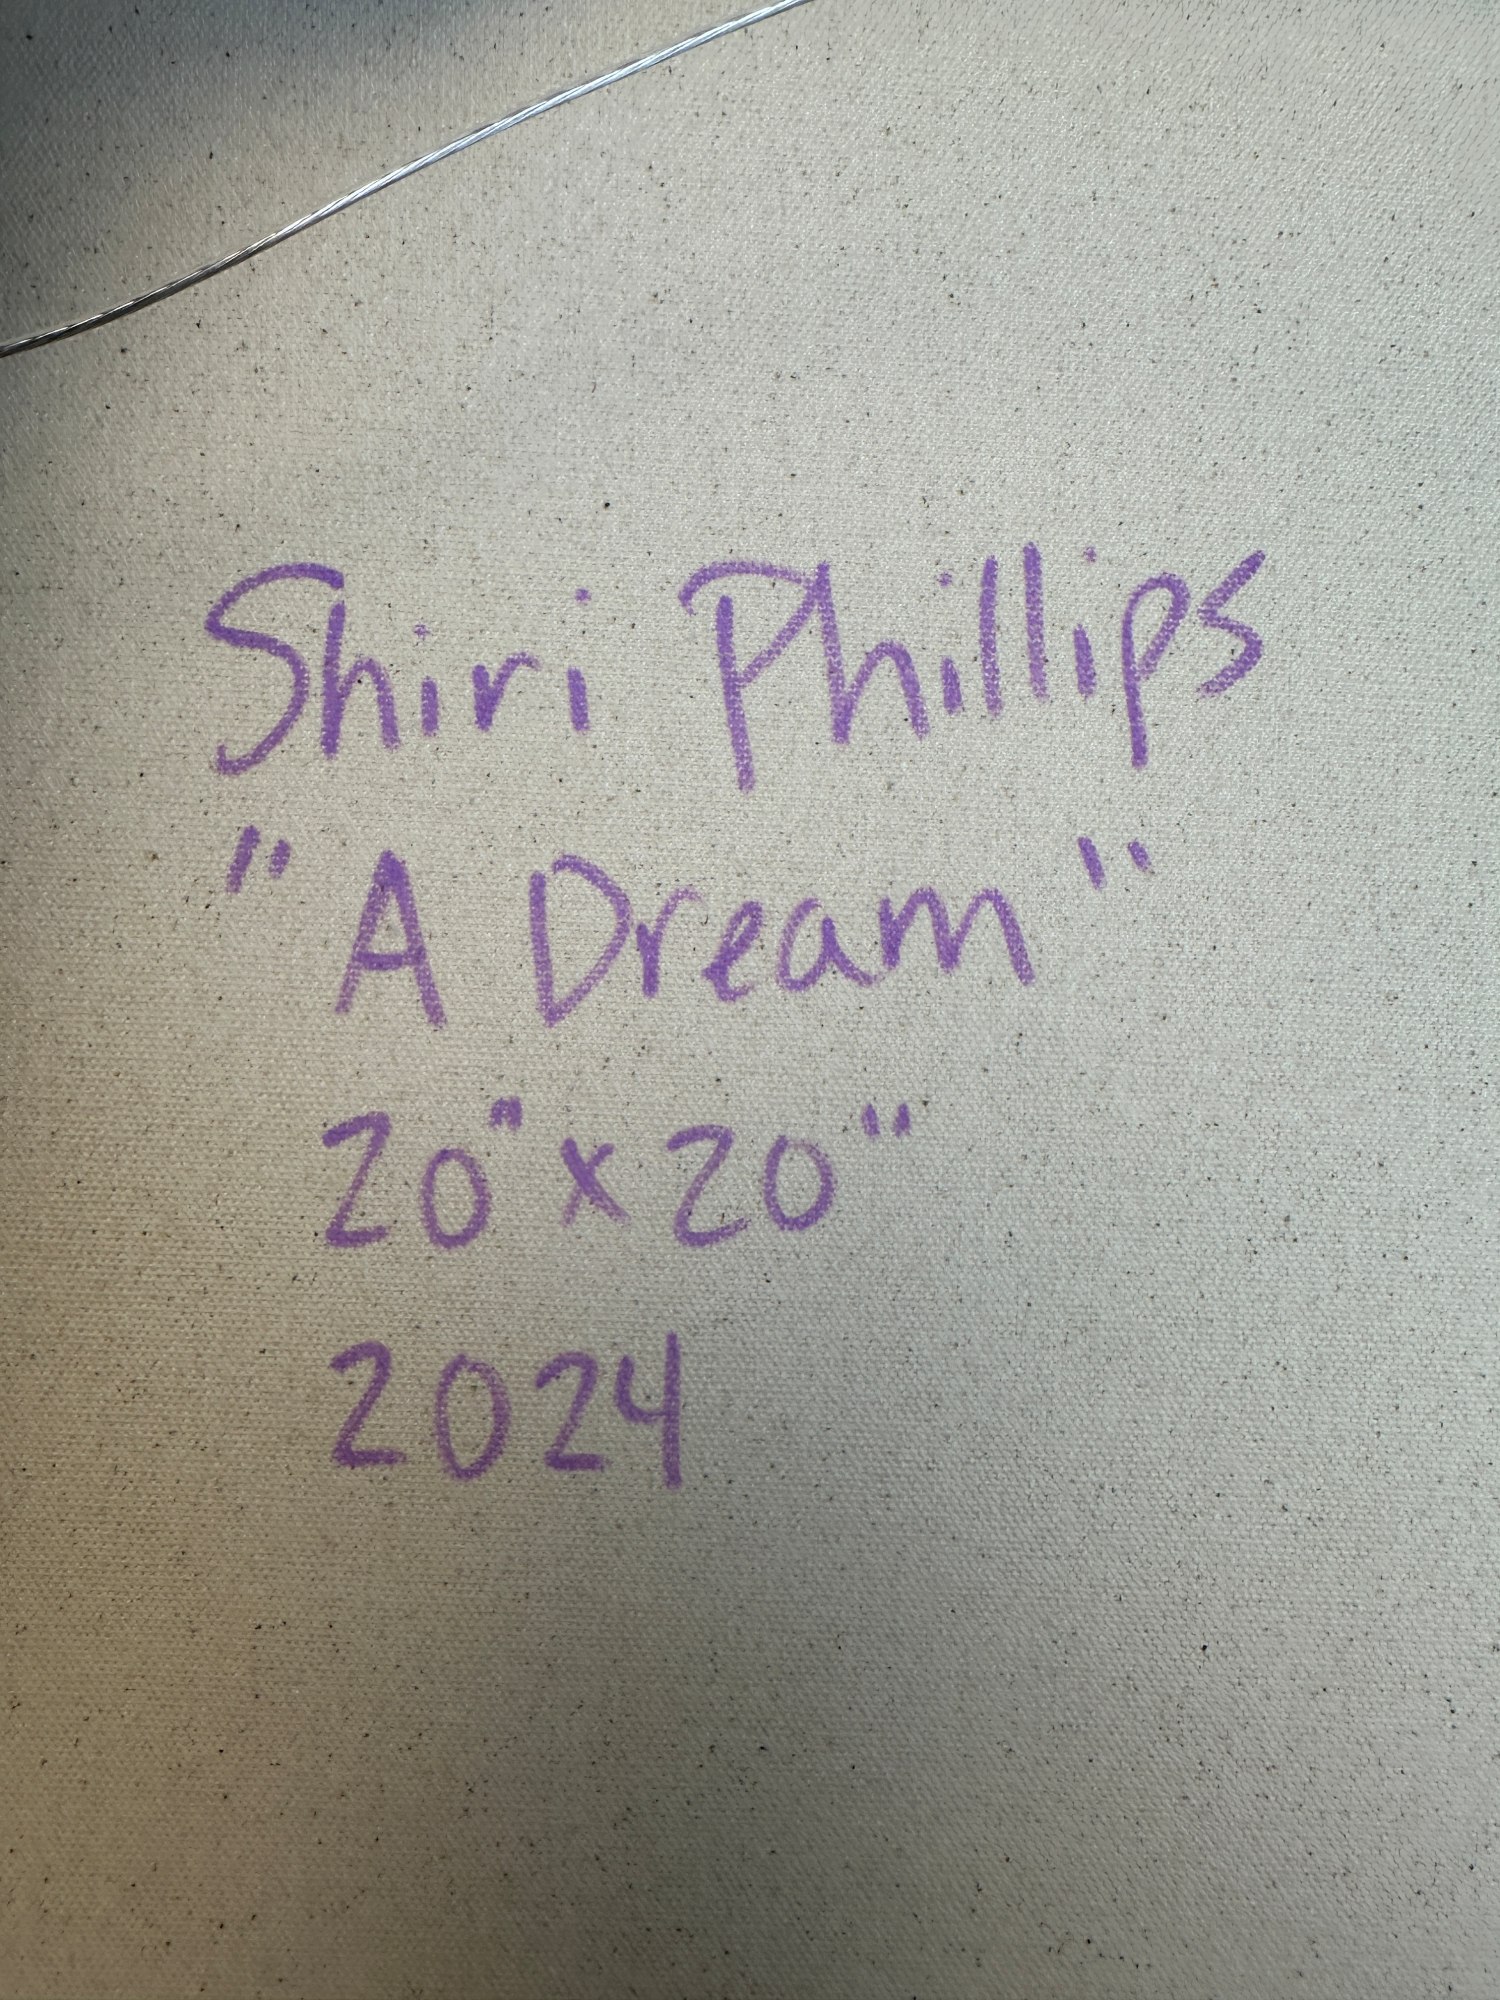 Shiri Phillips
"A Dream"
20" x 20"
2024